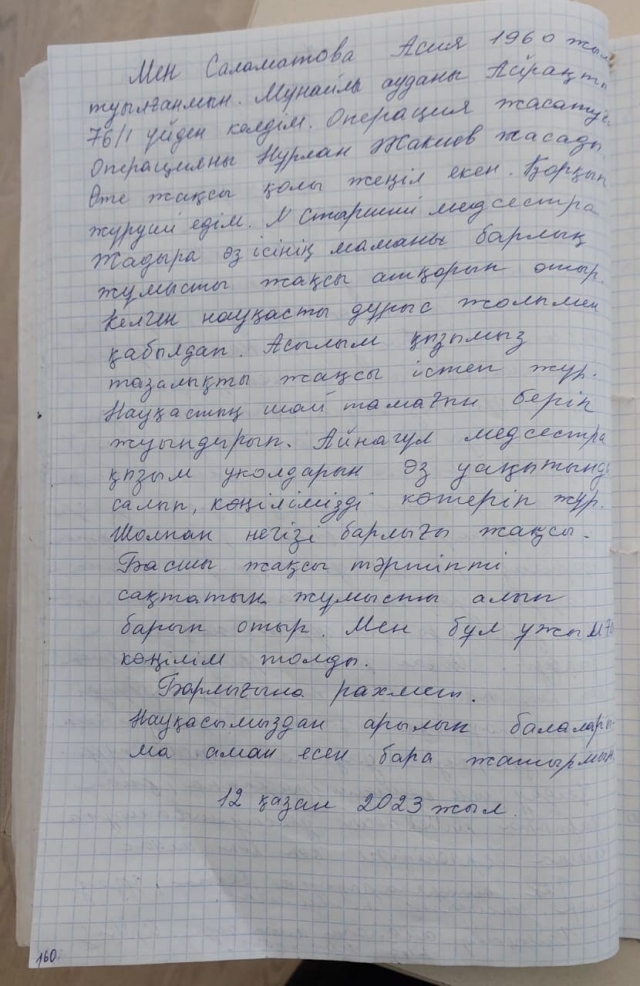 Мен Саламатова Асия 1960 жыл
туылғанмын. Мунайлы ауданы Айрақты
76/1 үйден келдім. Операция жасатуға
Операцияны Нурлан Жакиев жасады
Өте жақсы қолы жеңіл екен. Қорқып
жүруші едім. Старший медсестра
Жадыра өз ісінің маманы барлық
жұмысты жақсы атқарып отыр.
Келген науқасты дұрыс жолымен
қабылдап. Асылым қызымыз
тазалықты жақсы істеп жүр.
Науқастың шай тамағын беріп
жуындырып. Айнагул медсестра
қызым уколдарын өз уақытында
салып, көңілімізді көтеріп жүр.
Шолпан негізі барлығы жақсы.
Басшы жақсы тәртіпті
сақтатып жұмысты алып
барып отыр. Мен бұл ұжымға
көңілім толды.
Барлығына рахмет.
Науқасымыздан арылып балалары
ма аман есен бара жатырмын
12 қазан 2023 жыл.
160.